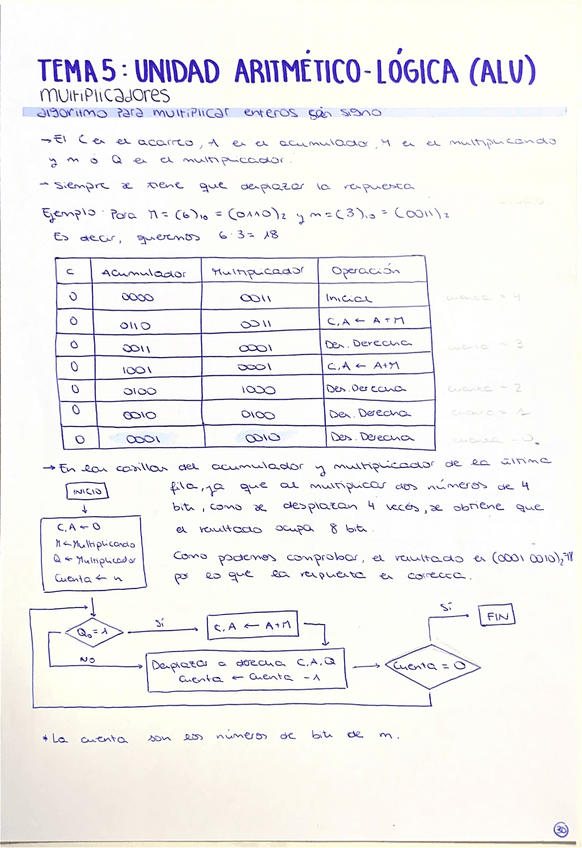 TEMA 5: UNIDAD ARITMÉTICO-LÓGICA (ALU)
MUltiPlicadores
algoritmo para multiplicar enteros sin signo
→ El C es el acarreo, A es el acumulador, M es el multiplicando
y m o Q es el multiplicador.
→ Siempre se tiene que desplazar la respuesta
Ejemplo: Para M = (6)₁₀ = (0110)₂ y m = (3)₁₀ = (0011)₂
Es decir, queremos 6·3 = 18
C Acumulador Multiplicador Operación
0 0000 0011 Inicial cuenta = 4
0 0110 0011 C,A ← A+M
0 0011 0001 Des. Derecha cuenta = 3
0 1001 0001 C,A ← A+M
0 0100 1000 Des. Derecha cuenta = 2
0 0010 0100 Des. Derecha cuenta = 1
0 0001 0010 Des. Derecha cuenta = 0
→ En las casillas del acumulador y multiplicador de la última
fila, ya que al multiplicar dos números de 4
bits, como se desplazan 4 veces, se obtiene que
el resultado ocupa 8 bits.
Como podemos comprobar, el resultado es (0001 0010)₂
por eso que la respuesta es correcta.
INICIO
C,A ← 0
M ← Multiplicando
Q ← Multiplicador
Cuenta ← n
Q₀ = 1
Sí
C,A ← A+M
NO
Desplazar a derecha C,A,Q
Cuenta ← Cuenta -1
Cuenta = 0
Sí
FIN
* La cuenta son los números de bits de m.
30